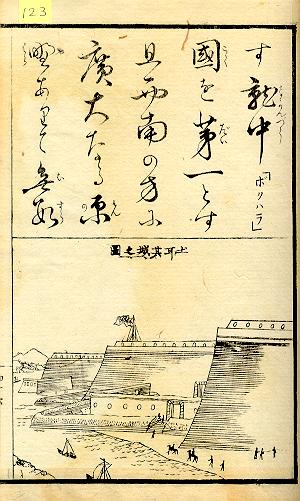 123
す就中「ボクハラ」
國を第一とす
且西南の方に
廣大なる原
野ありて無数
土耳其城之圖